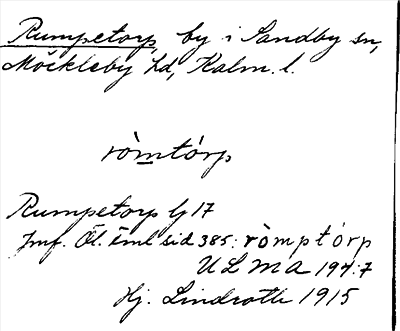 Rumpetorp, by i Sandby sn,
Möckleby hd, Kalm. l.
ròmtórp
Rumpetorp Lj 17
Jmf. Öl. Eml sid 385: ròmptórp
ULMA 194:7
Hj. Lindroth 1915